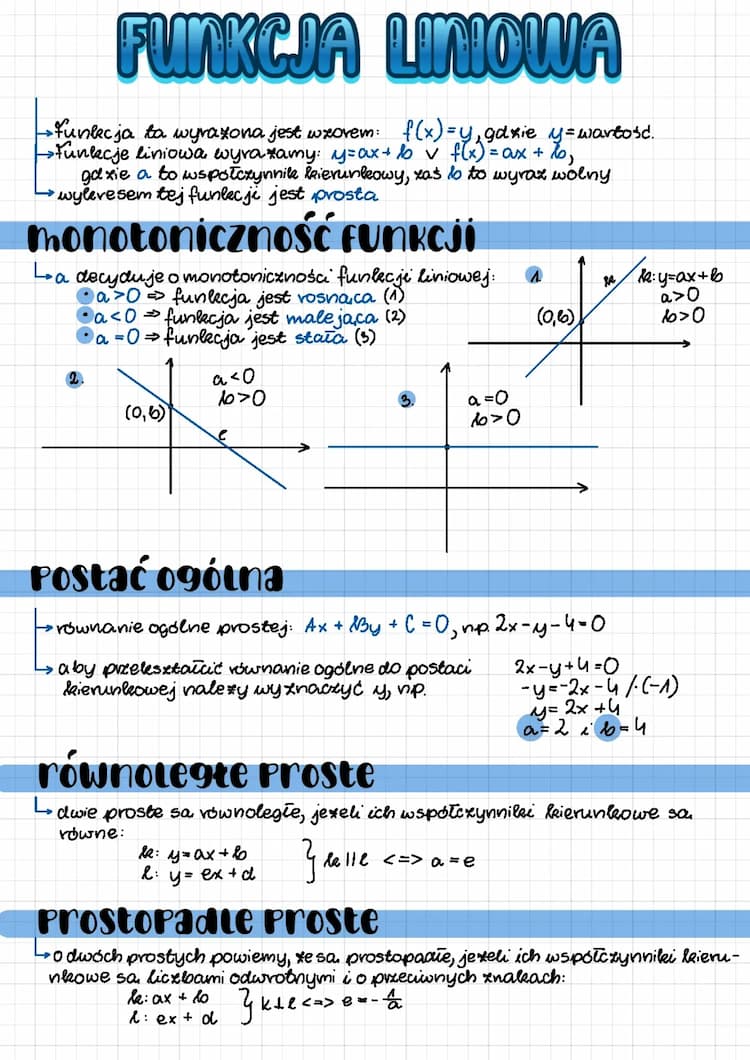 FUNKCJA LINIOWA
funkcja ta wyrażona jest wzorem: f(x)=y, gdzie y=wartość.
funkcje liniową wyrażamy: y=ax+b ∨ f(x)=ax+b,
gdzie a to współczynnik kierunkowy, zaś b to wyraz wolny
wykresem tej funkcji jest prosta
monotoniczność funkcji
a decyduje o monotoniczności funkcji liniowej:
a>0 => funkcja jest rosnąca (1)
a<0 => funkcja jest malejąca (2)
a=0 => funkcja jest stała (3)
1.
k: y=ax+b
a>0
b>0
(0,b)
2.
a<0
b>0
(0,b)
3.
a=0
b>0
postać ogólna
równanie ogólne prostej: Ax+By+C=0, np. 2x-y-4=0
aby przekształcić równanie ogólne do postaci
kierunkowej należy wyznaczyć y, np.
2x-y+4=0
-y=-2x-4 /·(-1)
y=2x+4
a=2 i b=4
równoległe proste
dwie proste są równoległe, jeżeli ich współczynniki kierunkowe są
równe:
k: y=ax+b
l: y=ex+d
} k||l <=> a=e
prostopadłe proste
o dwóch prostych powiemy, że są prostopadłe, jeżeli ich współczynniki kieru-
nkowe są liczbami odwrotnymi i o przeciwnych znakach:
k: ax+b
l: ex+d
} k⊥l <=> e=-1/a